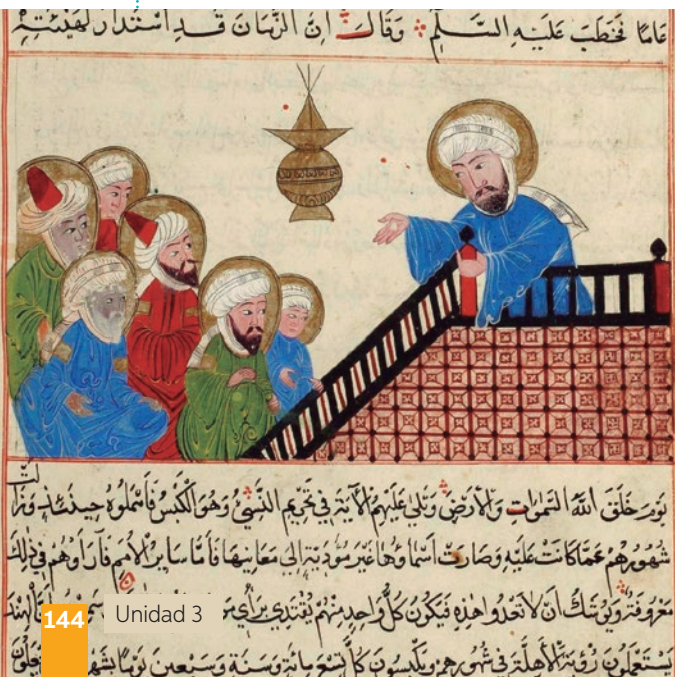 عامًا فخطب عليه السلم وقال ان الزمان قد استدار لهيئته
يوم خلق الله السموات والارض وتلى عليهم الآية في تحريم النسئ وهو الكبس فاهملوه حينئذ وزالت
شهورهم عما كانت عليه وصارت اسماؤها غير مؤدية الى معانيها فأما ساير الأمم فآراؤهم في ذلك
معروفة ويوشك ان لا تعدوا هذه فيكون كل واحد منهم يقتدي براي من
يستعملون رؤية الأهلة في شهورهم ويكبسون كل تسع مائة وسنة وسبعين يوما بشهر
144
Unidad 3